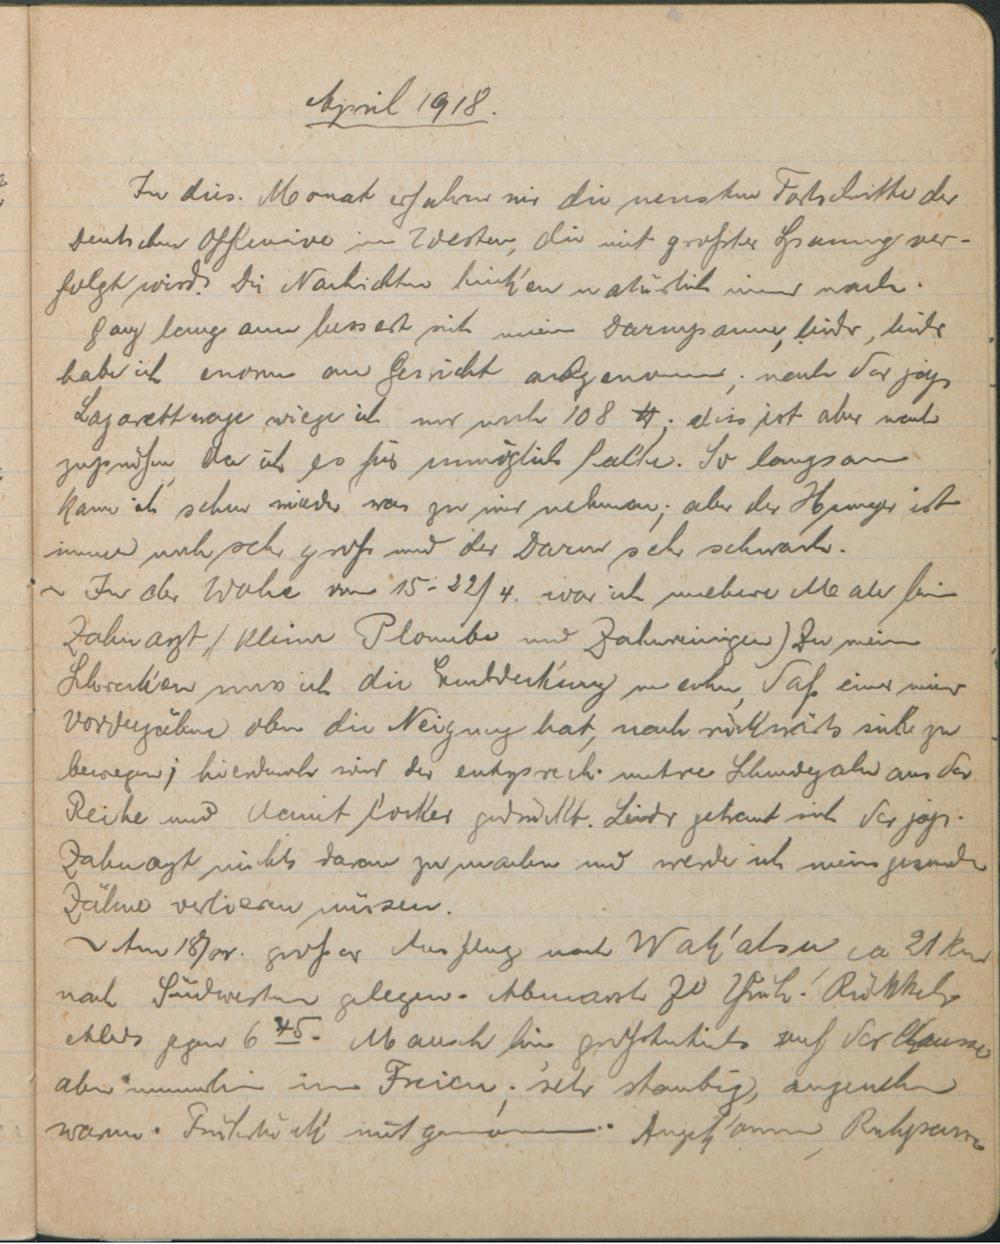 April 1918.
In dies. Monat erfahren wir die neuesten Fortschritte der
deutschen Offensive im Westen, die mit größter Spannung ver-
folgt wird. Die Nachrichten hinken natürlich immer nach.
Ganz langsam bessert sich mein Darm, leider, leider
habe ich enorm an Gewicht abgenommen; nach der jap.
Lazarettwage wiege ich nur noch 108 ℔; dies ist aber noch
zu prüfen, da ich es für unmöglich halte. So langsam
kann ich schon wieder was zu mir nehmen; aber der Hunger ist
immer noch sehr groß und der Darm sehr schwach.
~ In der Woche vom 15-22/4. war ich mehrere Male beim
Zahnarzt (kleine Plombe und Zahnreinigen) Zu mein
Schrecken muss ich die Entdeckung machen, daß einer meiner
Vorderzähne oben die Neigung hat, nach rückwärts sich zu
bewegen; hierdurch wird der entsprech. untere Schneidezahn aus der
Reihe und damit locker gedrückt. Leider getraut sich der jap.
Zahnarzt nichts daran zu machen und werde ich meine gesunden
Zähne verlieren müssen.
~ Am 18/IV. großer Ausflug nach Wak'atsu ca 21 km
nach Südwesten gelegen. Abmarsch 7⁰⁰ früh! Rückkehr
Abds gegen 6 45. Marsch hin größtenteils auf der Chaussee
aber immerhin im Freien; sehr staubig, angenehm
warm. Frühstück mitgenommen. Angekommen, Ruhepause